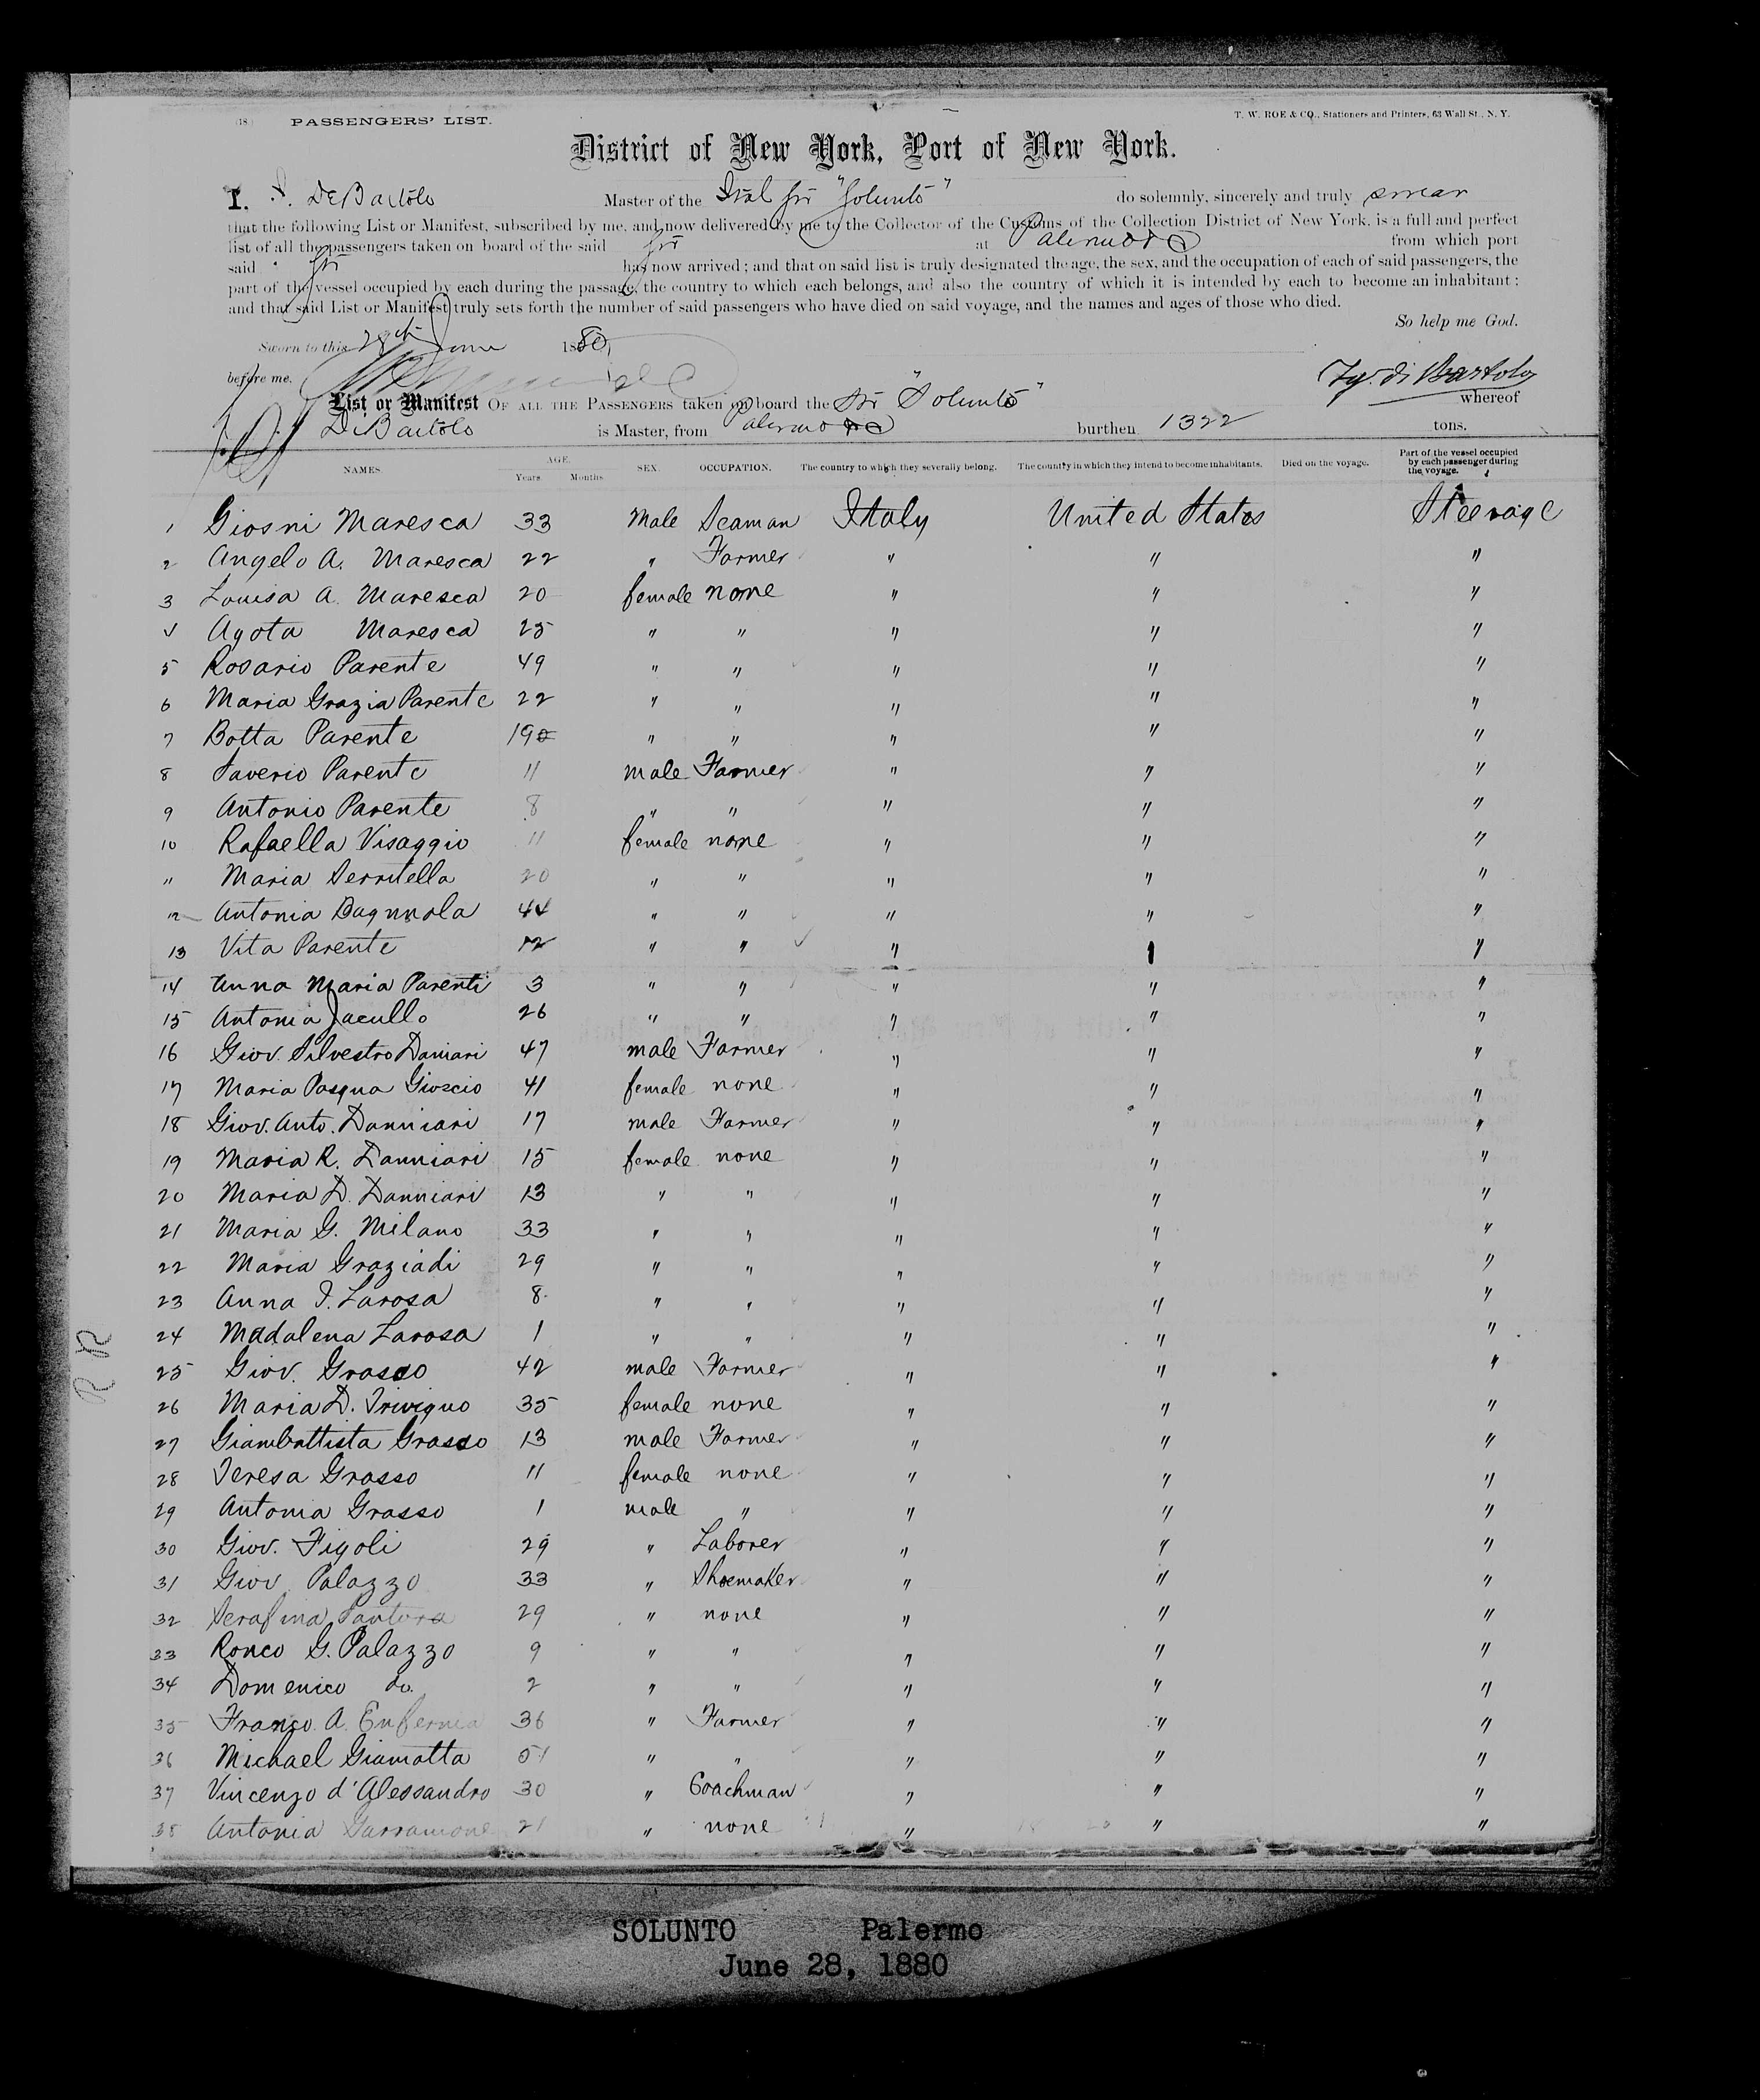 (18.) PASSENGERS' LIST.
T. W. ROE & CO., Stationers and Printers, 63 Wall St., N. Y.
District of New York, Port of New York.
I. DeBartolo Master of the Ital Str "Solunto" do solemnly, sincerely and truly swear
that the following List or Manifest, subscribed by me, and now delivered by me to the Collector of the Customs of the Collection District of New York, is a full and perfect
list of all the passengers taken on board of the said Str at Palermo from which port
said Str has now arrived; and that on said list is truly designated the age, the sex, and the occupation of each of said passengers, the
part of the vessel occupied by each during the passage, the country to which each belongs, and also the country of which it is intended by each to become an inhabitant;
and that said List or Manifest truly sets forth the number of said passengers who have died on said voyage, and the names and ages of those who died.
So help me God.
Sworn to this 28th June 1880,
before me, di Bartolo
List or Manifest OF ALL THE PASSENGERS taken on board the Str "Solunto" whereof
DiBartolo is Master, from Palermo burthen 1322 tons.
NAMES. AGE. Years. Months. SEX. OCCUPATION. The country to which they severally belong. The country in which they intend to become inhabitants. Died on the voyage. Part of the vessel occupied by each passenger during the voyage.
1 Giosni Maresca 33 Male Seaman Italy United States Steerage
2 Angelo A. Maresca 22 " Farmer " " "
3 Louisa A. Maresca 20 female none " " "
4 Agota Maresca 25 " " " " "
5 Rosario Parente 49 " " " " "
6 Maria Grazia Parente 22 " " " " "
7 Botta Parente 19 " " " " "
8 Saverio Parente 11 male Farmer " " "
9 Antonio Parente 8 " " " " "
10 Rafaella Visaggio 11 female none " " "
11 Maria Serritella 20 " " " " "
12 Antonia Bagnnola 44 " " " " "
13 Vita Parente 12 " " " " "
14 Anna Maria Parenti 3 " " " " "
15 Antonia Jacullo 26 " " " " "
16 Giov. Silvestro Daniari 47 male Farmer " " "
17 Maria Pasqua Gioscio 41 female none " " "
18 Giov. Anto. Danniari 17 male Farmer " " "
19 Maria R. Danniari 15 female none " " "
20 Maria D. Danniari 13 " " " " "
21 Maria G. Milano 33 " " " " "
22 Maria Graziadi 29 " " " " "
23 Anna I. Larosa 8 " " " " "
24 Madalena Larosa 1 " " " " "
25 Giov. Grasso 42 male Farmer " " "
26 Maria D. Trivigno 35 female none " " "
27 Giambattista Grasso 13 male Farmer " " "
28 Teresa Grasso 11 female none " " "
29 Antonia Grasso 1 male " " " "
30 Giov. Figoli 29 " Laborer " " "
31 Giov. Palazzo 33 " Shoemaker " " "
32 Serafina Santora 29 " none " " "
33 Ronco G. Palazzo 9 " " " " "
34 Domenico do. 2 " " " " "
35 Franco. A. Enfernia 36 " Farmer " " "
36 Michael Giamatta 51 " " " " "
37 Vincenzo d'Alessandro 30 " Coachman " " "
38 Antonia Garramone 21 " none " " "
SOLUNTO Palermo
June 28, 1880